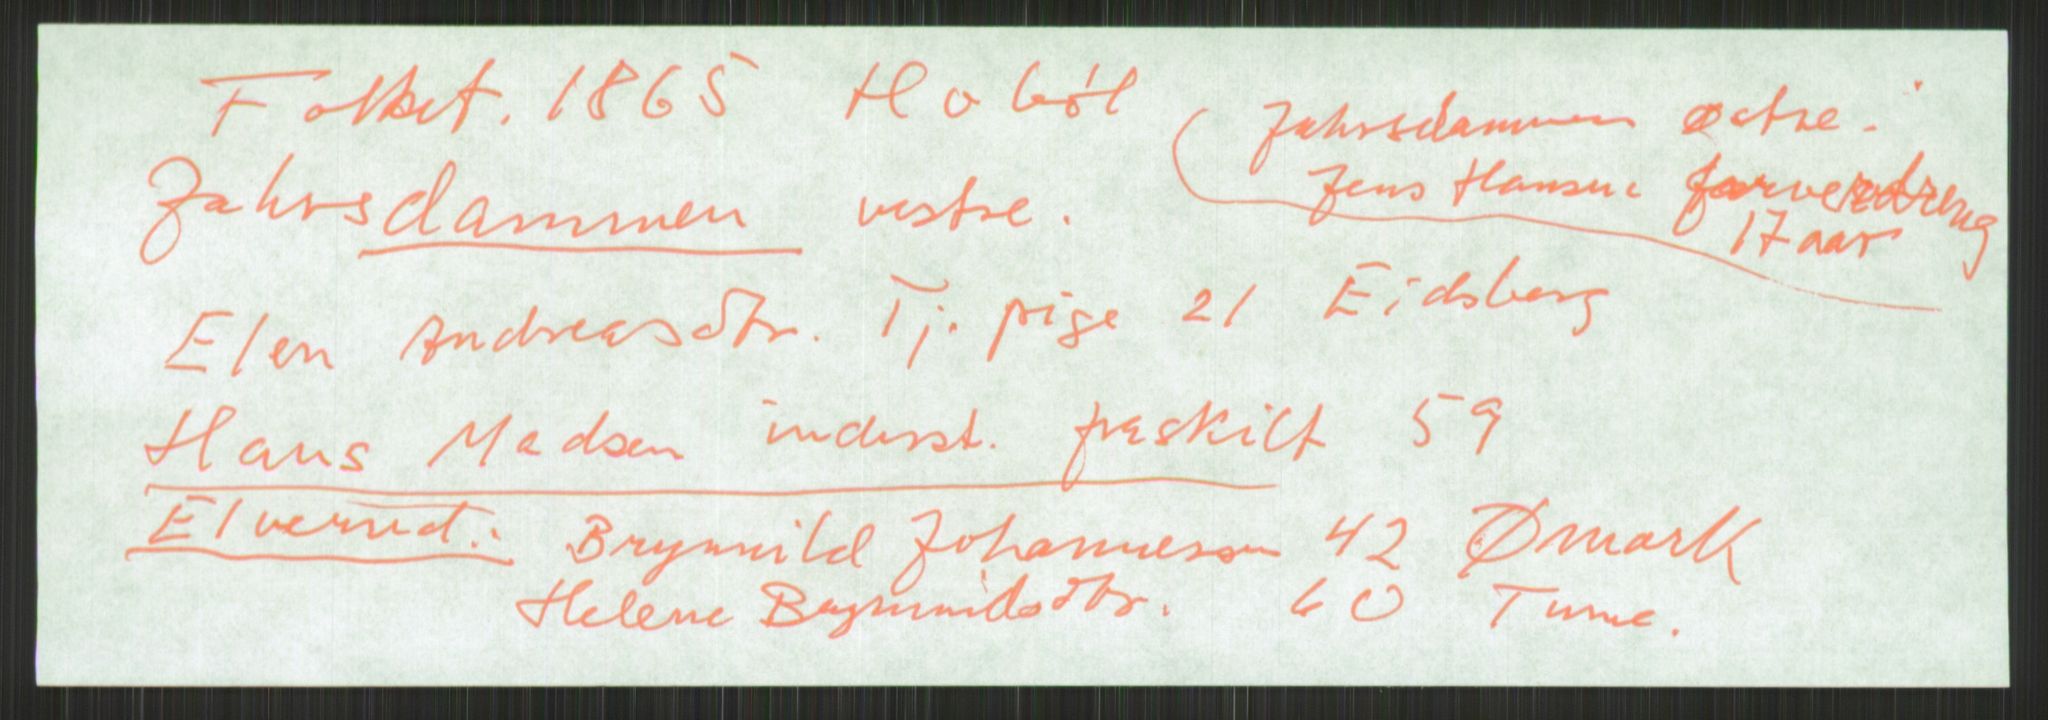 Folket. 1865 Hobøl
Jahrsdammen vestre.
(Jahrsdammen østre.
Jens Hansen farverdreng
17 aar
Elen Andreasdtr. Tj. pige 21 Eidsberg
Hans Madsen inderst. fraskilt 59
Elverud.: Brynnild Johannesen 42 Ømark
Helene Brynnildsdtr. 60 Tune.